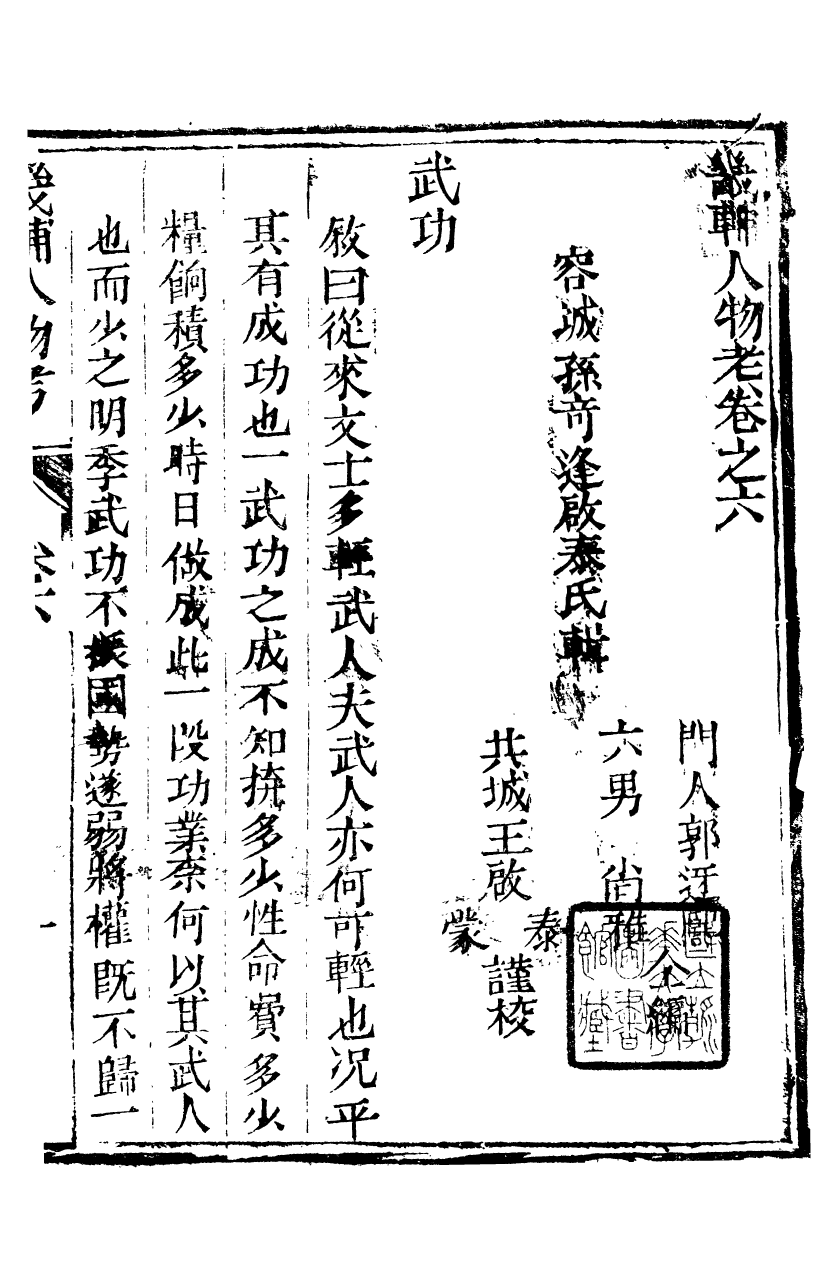 畿輔人物考卷之六
容城孫奇逢啟泰氏輯
門人郭
六男 尚雅 全編
共城王啟泰蒙謹校
武功
敘曰從來文士多輕武人夫武人亦何可輕也况平
其有成功也一武功之成不知𢬵多少性命費多少
糧餉積多少時日做成此一段功業奈何以其武人
也而少之明季武功不振國勢遂弱將權既不歸一
畿輔人物考 卷六 一